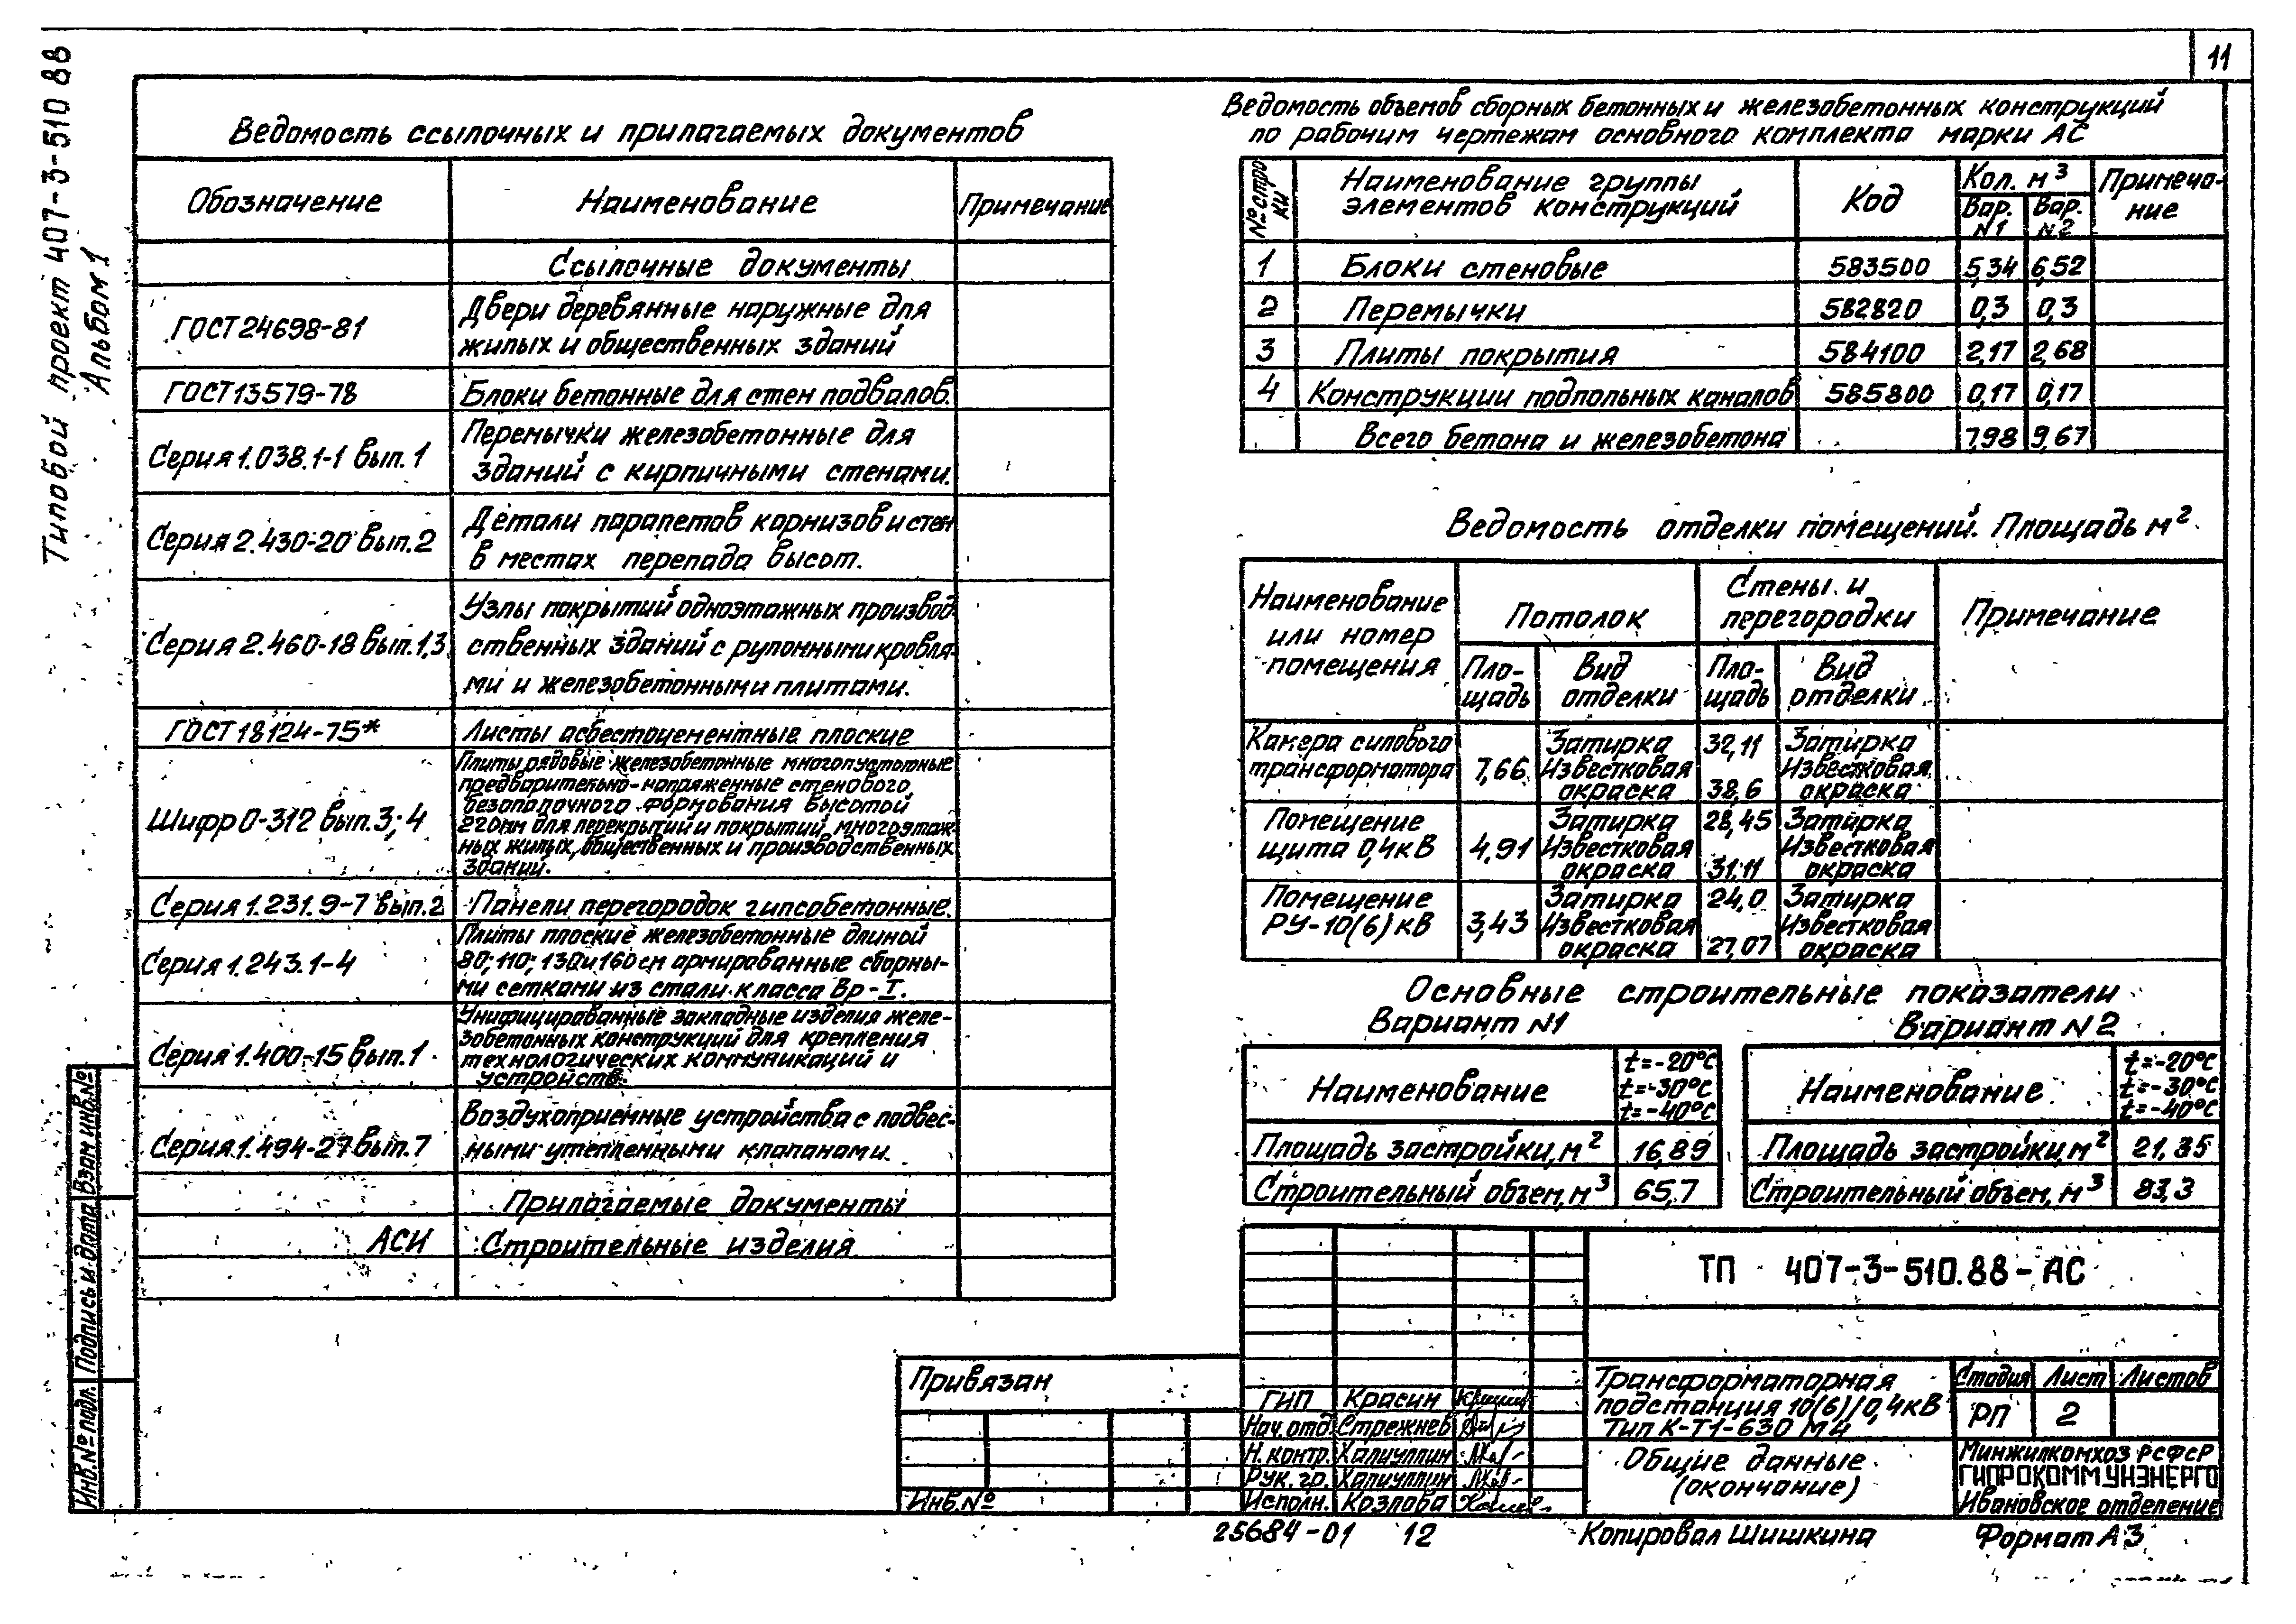 11
Типовой проект 407-3-510 88
Альбом 1
Ведомость ссылочных и прилагаемых документов
Обозначение Наименование Примечание
Ссылочные документы
ГОСТ 24698-81 Двери деревянные наружные для
жилых и общественных зданий
ГОСТ 13579-78 Блоки бетонные для стен подвалов.
Серия 1.038.1-1 вып. 1 Перемычки железобетонные для
зданий с кирпичными стенами.
Серия 2.430-20 вып. 2 Детали парапетов карнизов и стен
в местах перепада высот.
Серия 2.460-18 вып. 1,3 Узлы покрытий одноэтажных производ-
ственных зданий с рулонными кровля-
ми и железобетонными плитами.
ГОСТ 18124-75* Листы асбестоцементные плоские
Шифр 0-312 вып. 3; 4 Плиты рядовые железобетонные многопустотные
предварительно-напряженные стенового
безопалочного формования высотой
220мм для перекрытий и покрытий многоэтаж-
ных жилых, общественных и производственных
зданий.
Серия 1.231.9-7 вып. 2 Панели перегородок гипсобетонные.
Серия 1.243.1-4 Плиты плоские железобетонные длиной
80; 110; 130 и 160 см армированные сборны-
ми сетками из стали класса Вр-I.
Серия 1.400-15 вып. 1 Унифицированные закладные изделия желе-
зобетонных конструкций для крепления
технологических коммуникаций и
устройств.
Серия 1.494-27 вып. 7 Воздухоприемные устройства с подвес-
ными утепленными клапанами.
Прилагаемые документы
АСИ Строительные изделия
Ведомость объемов сборных бетонных и железобетонных конструкций
по рабочим чертежам основного комплекта марки АС
№ строки Наименование группы элементов конструкций Код Кол. м³ Вар. N1 Вар. N2 Примечание
1 Блоки стеновые 583500 5,34 6,52
2 Перемычки 582820 0,3 0,3
3 Плиты покрытия 584100 2,17 2,68
4 Конструкции подпольных каналов 585800 0,17 0,17
Всего бетона и железобетона 7,98 9,67
Ведомость отделки помещений. Площадь м²
Наименование или номер помещения Потолок Стены и перегородки Примечание
Площадь Вид отделки Площадь Вид отделки
Камера силового Затирка 32,11 Затирка
трансформатора 7,66 Известковая Известковая
окраска 38,6 окраска
Помещение Затирка 28,45 Затирка
щита 0,4кВ 4,91 Известковая Известковая
окраска 31,11 окраска
Помещение Затирка 24,0 Затирка
РУ-10(6) кВ 3,43 Известковая Известковая
окраска 27,07 окраска
Основные строительные показатели
Вариант N1
Наименование t=-20°С
t=-30°С
t=-40°С
Площадь застройки, м² 16,89
Строительный объем, м³ 65,7
Вариант N2
Наименование t=-20°С
t=-30°С
t=-40°С
Площадь застройки, м² 21,35
Строительный объем, м³ 83,3
ТП 407-3-510.88-АС
Привязан
Инв.№
ГИП Красин
Нач. отд. Стрежнев
Н. контр. Халиуллин
Рук. гр. Халиуллин
Исполн. Козлова
Трансформаторная
подстанция 10(6)/0,4кВ
Тип К-Т1-630 М4
Стадия Лист Листов
РП 2
Общие данные
(окончание)
Минжилкомхоз РСФСР
ГИПРОКОММУНЭНЕРГО
Ивановское отделение
Взам инв.№
Подпись и дата
Инв.№ подл.
25684-01 12 Копировал Шишкина Формат А3